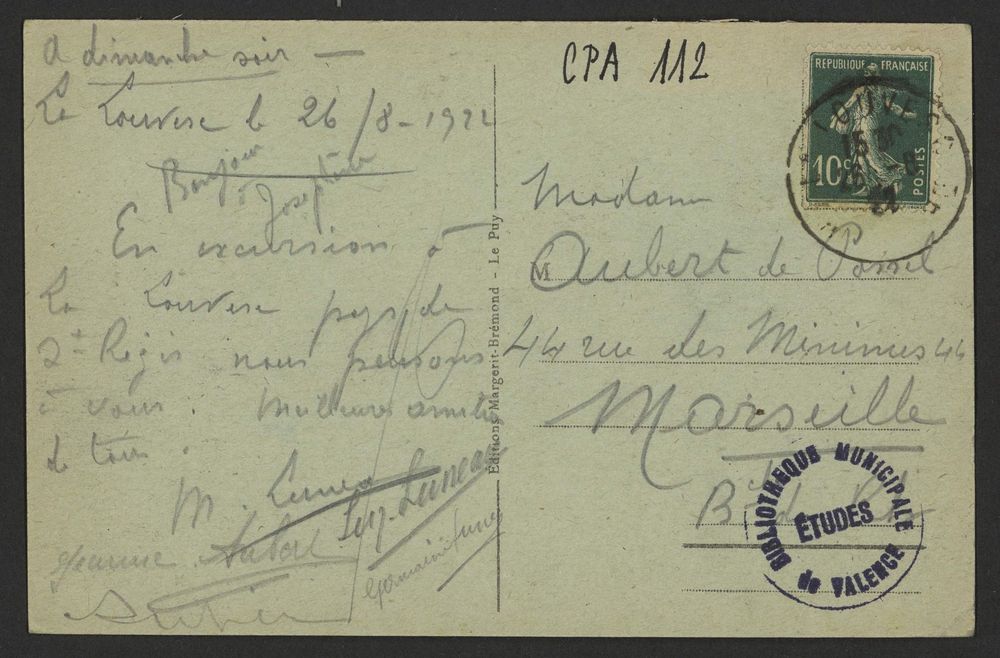 A dimanche soir —
La Louvesc le 26/8-1922
Bonjour
à Joseph
En excursion à
La Louvesc pays de
St Régis nous pensons
à vous. Meilleures amitiés
de tous.
M.
Jeanne Aubert
Germaine
Editions Margerit-Brémond - Le Puy
CPA 112
REPUBLIQUE FRANÇAISE
10c
POSTES
LA LOUVESC
22
Madame
M Aubert de Possel
44 rue des Minimes 44
Marseille
B. du Rh.
BIBLIOTHEQUE MUNICIPALE
ÉTUDES
de VALENCE